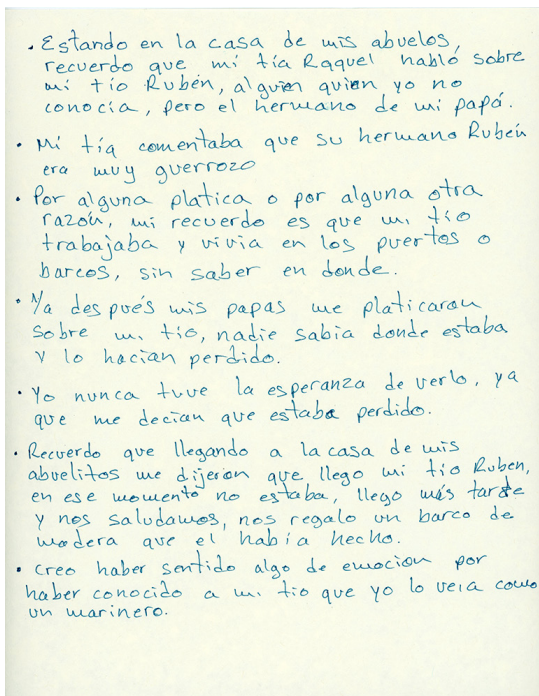 • Estando en la casa de mis abuelos,
recuerdo que mi tía Raquel habló sobre
mi tío Rubén, alguien quien yo no
conocía, pero el hermano de mi papá.
• Mi tía comentaba que su hermano Rubén
era muy guerrozo
• Por alguna platica o por alguna otra
razón, mi recuerdo es que mi tío
trabajaba y vivia en los puertos o
barcos, sin saber en donde.
• Ya después mis papas me platicaron
sobre mi tío, nadie sabia donde estaba
y lo hacian perdido.
• Yo nunca tuve la esperanza de verlo, ya
que me decian que estaba perdido.
• Recuerdo que llegando a la casa de mis
abuelitos me dijeron que llego mi tío Ruben,
en ese momento no estaba, llego más tarde
y nos saludamos, nos regalo un barco de
madera que el había hecho.
• Creo haber sentido algo de emocion por
haber conocido a mi tio que yo lo veia como
un marinero.